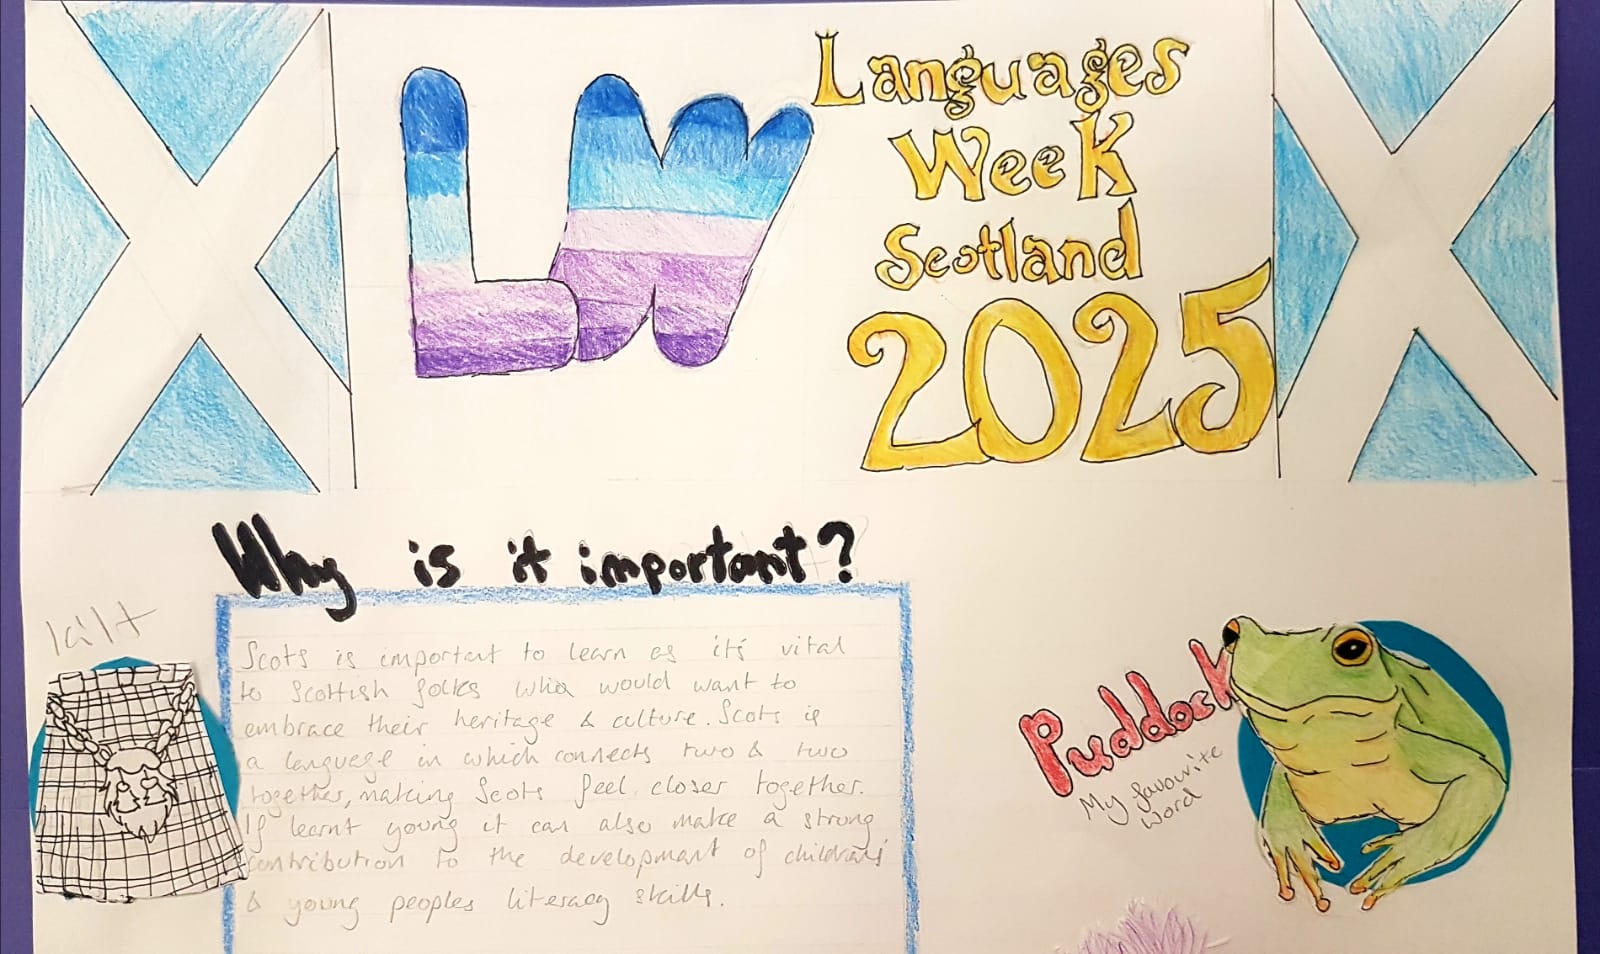 LW
Languages
Week
Scotland
2025
Why is it important?
kilt
Scots is important to learn as it's vital
to Scottish folks who would want to
embrace their heritage & culture. Scots is
a languege in which connects two & two
together, making Scots feel closer together.
If learnt young it can also make a strong
contribution to the development of childrens'
& young peoples literacy skills.
Puddock
My favourite
word